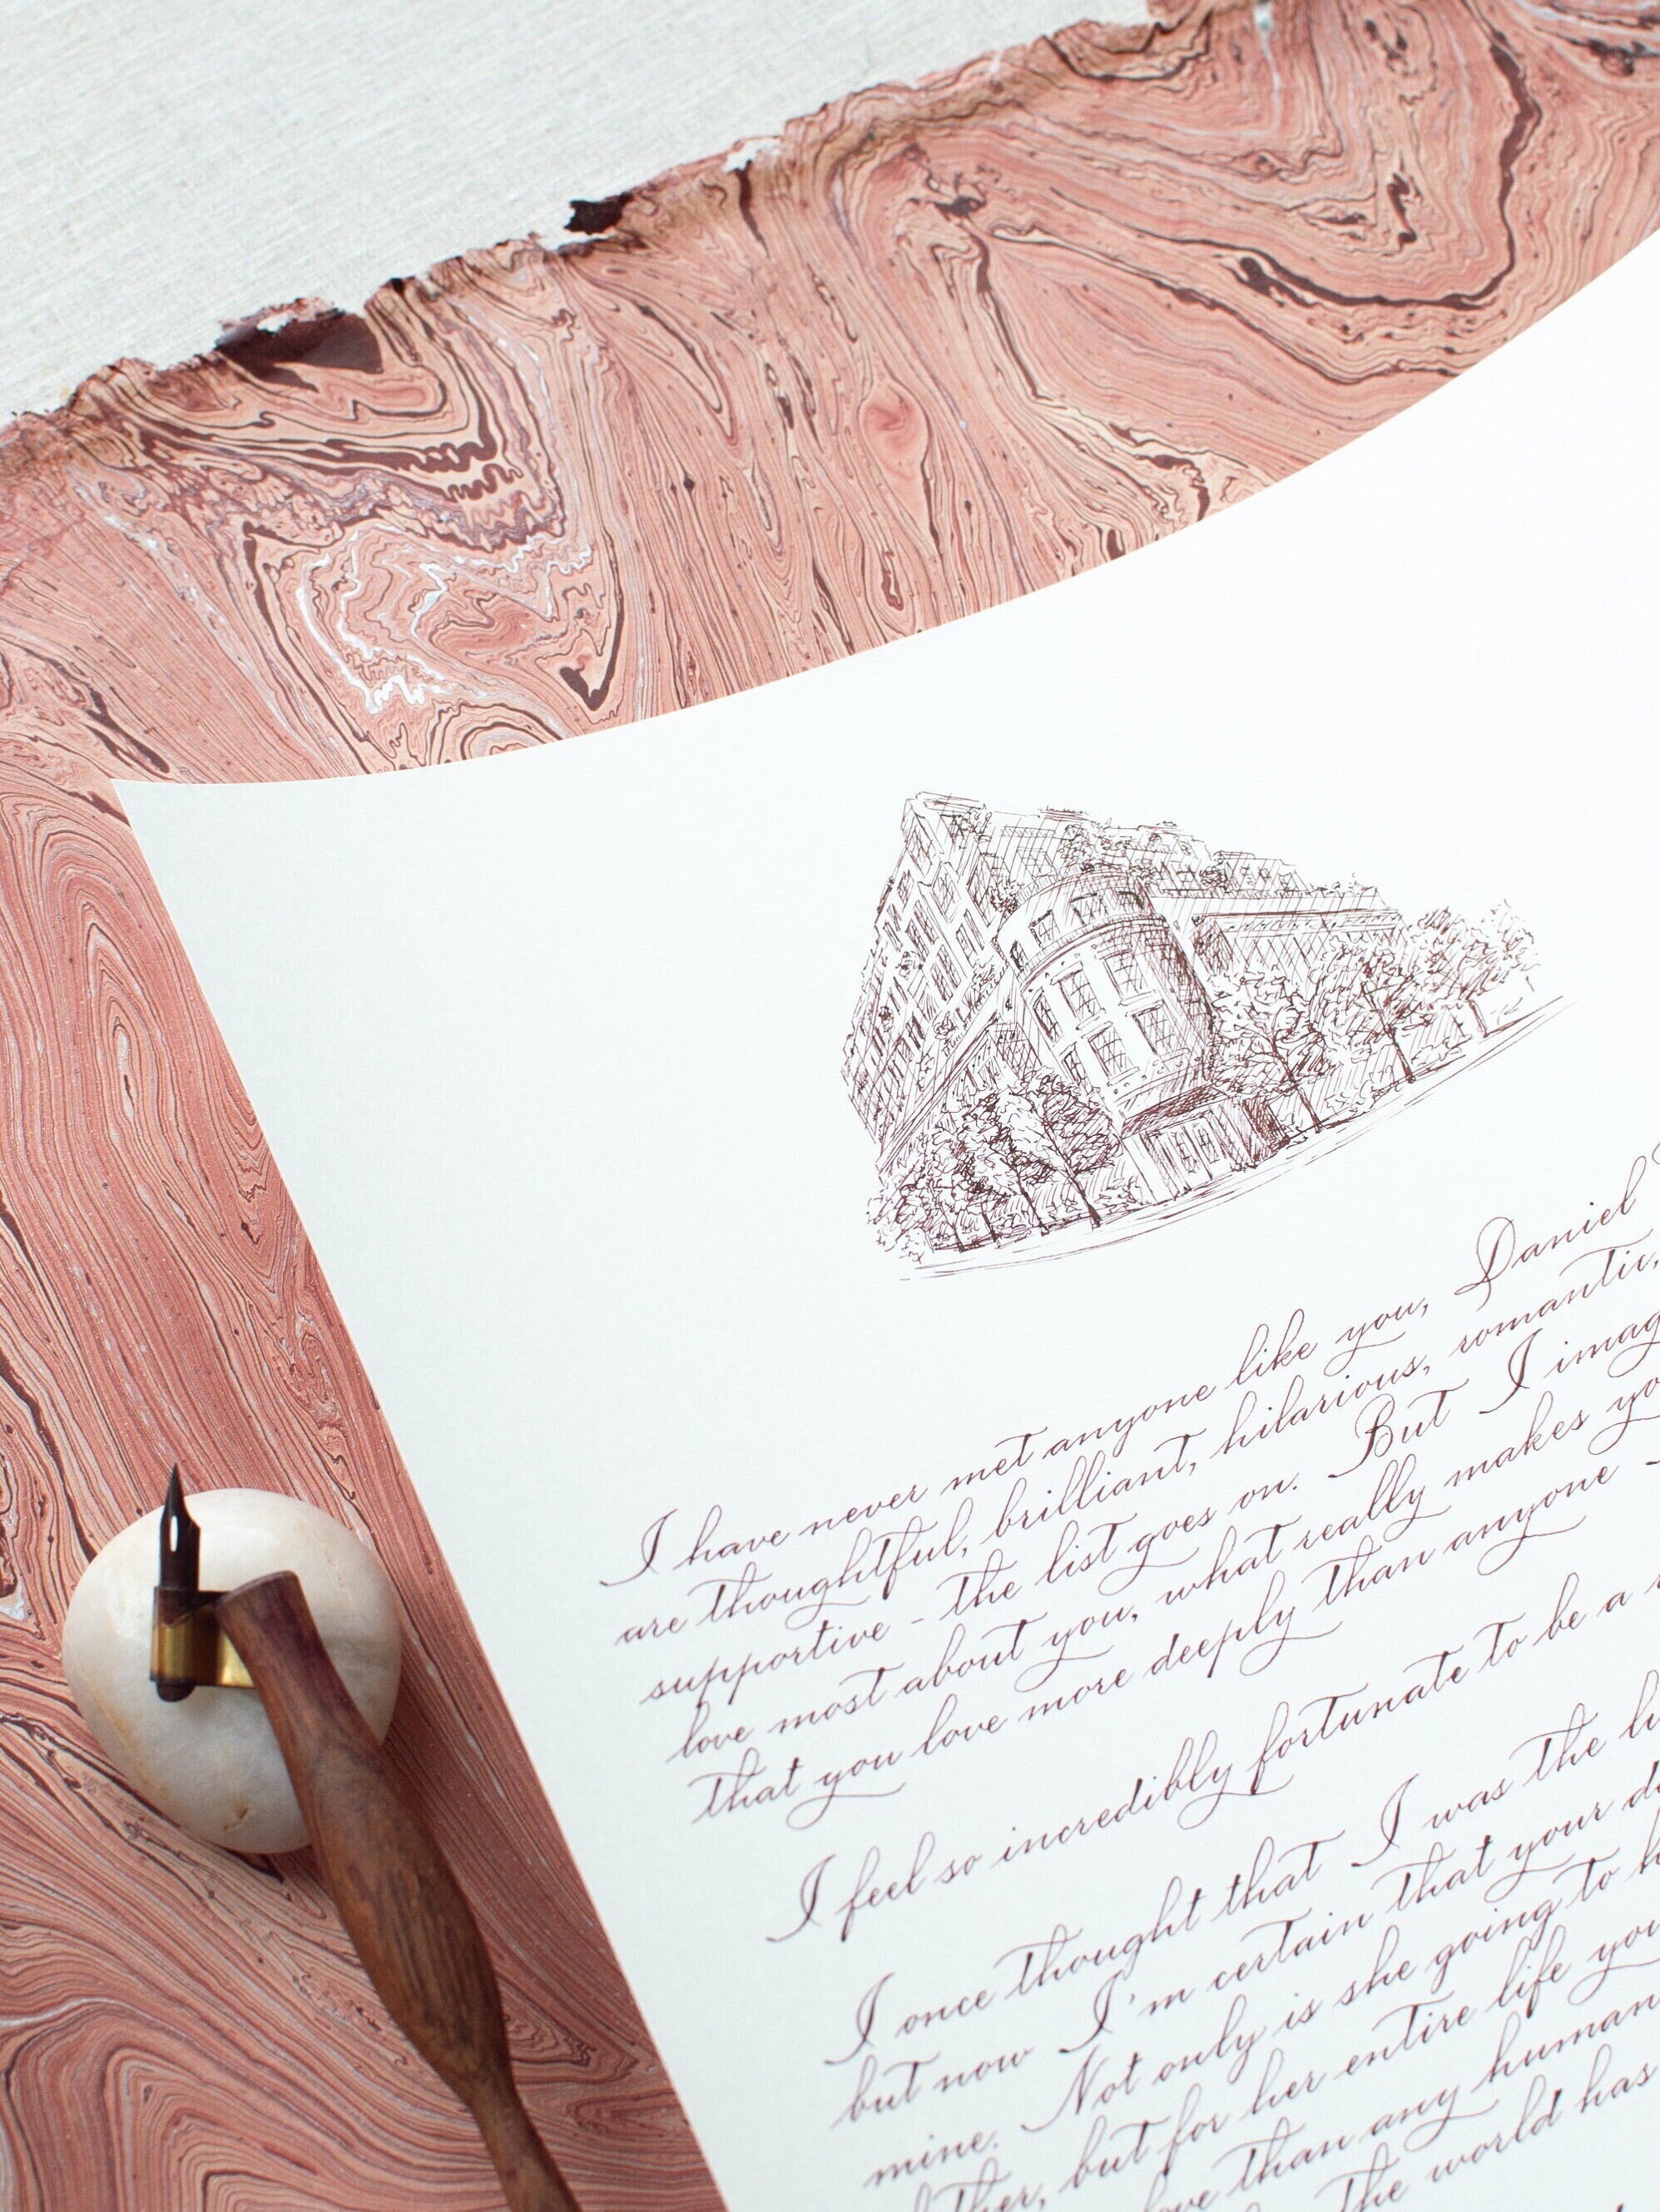 I have never met anyone like you, Daniel
are thoughtful, brilliant, hilarious, romantic,
supportive - the list goes on. But I imag
love most about you, what really makes yo
that you love more deeply than anyone -
I feel so incredibly fortunate to be a
I once thought that I was the lu
but now I'm certain that your da
mine. Not only is she going to h
ther, but for her entire life you
love than any human
The world has